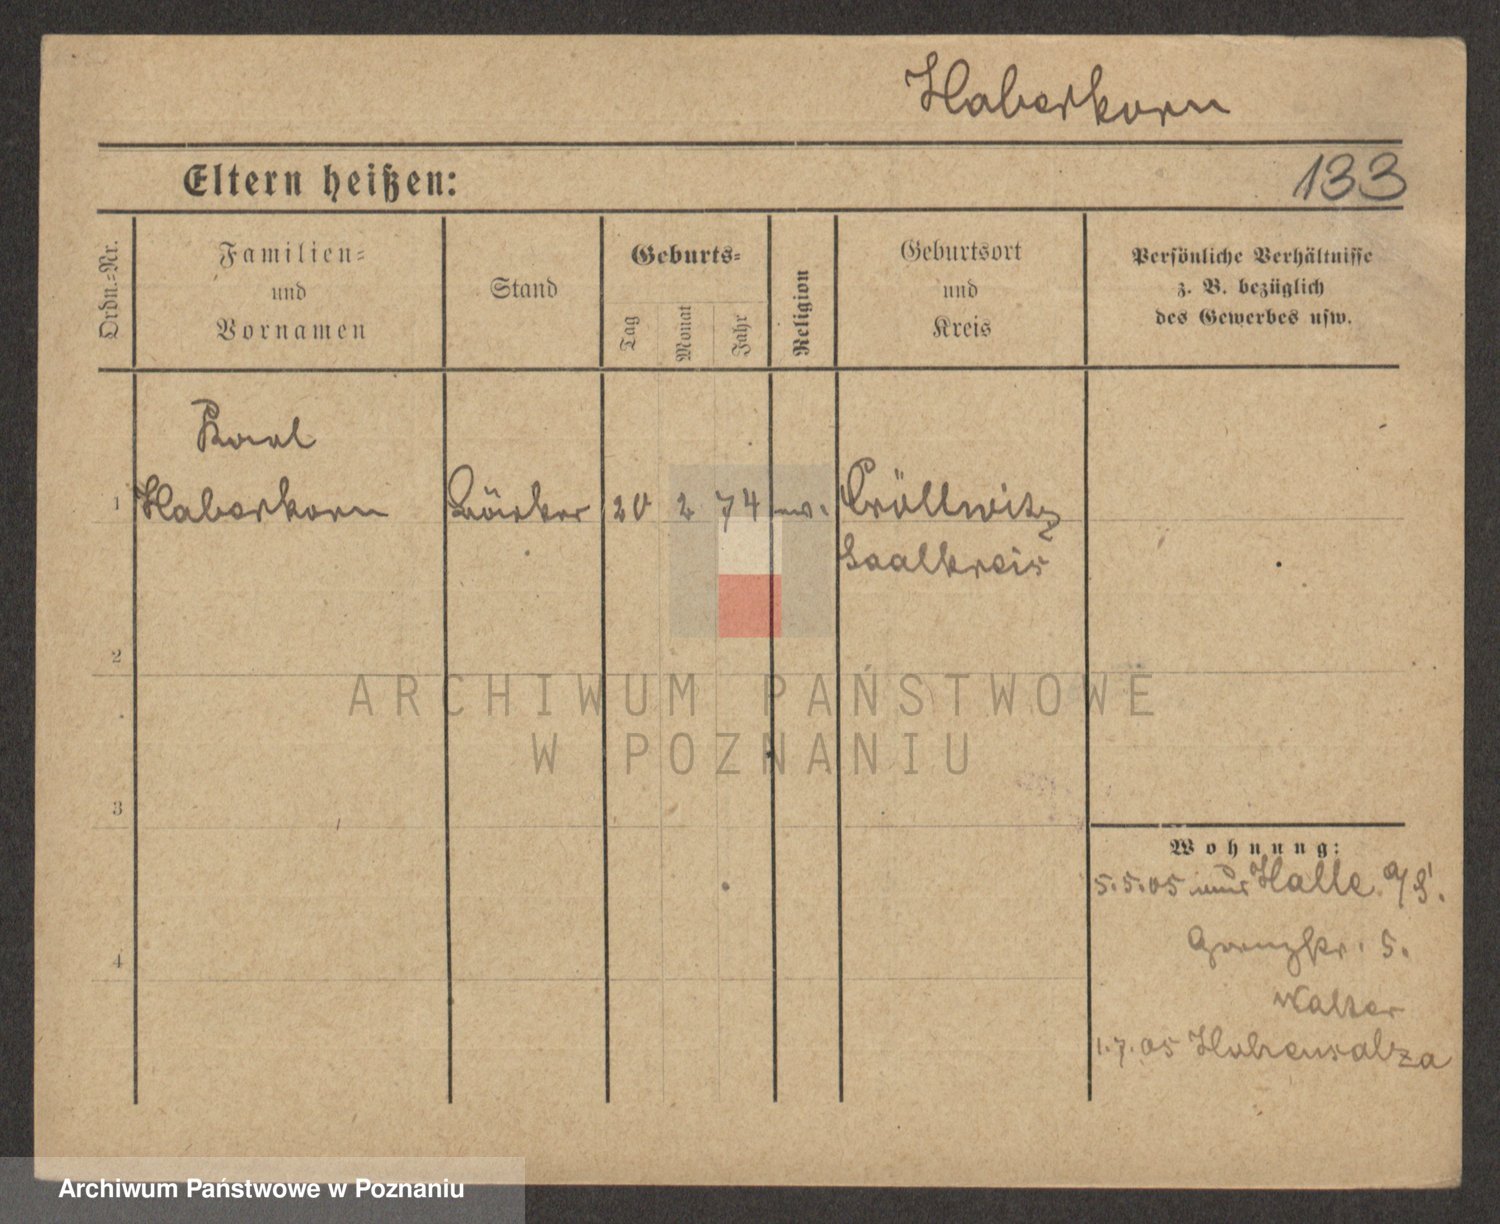 Haberkorn
Eltern heißen:
133
Ordn.-Nr.
Familien-
und
Vornamen
Stand
Geburts-
Tag
Monat
Jahr
Religion
Geburtsort
und
Kreis
Persönliche Verhältnisse
z. B. bezüglich
des Gewerbes usw.
Karl
1 Haberkorn Bäcker 20 2 74 ev. Cröllwitz
Saalkreis
2
ARCHIWUM PAŃSTWOWE
W POZNANIU
3
Wohnung:
5.5.05 nach Halle a/S.
5.
4
Walter
1.7.05 Hohensalza
Archiwum Państwowe w Poznaniu